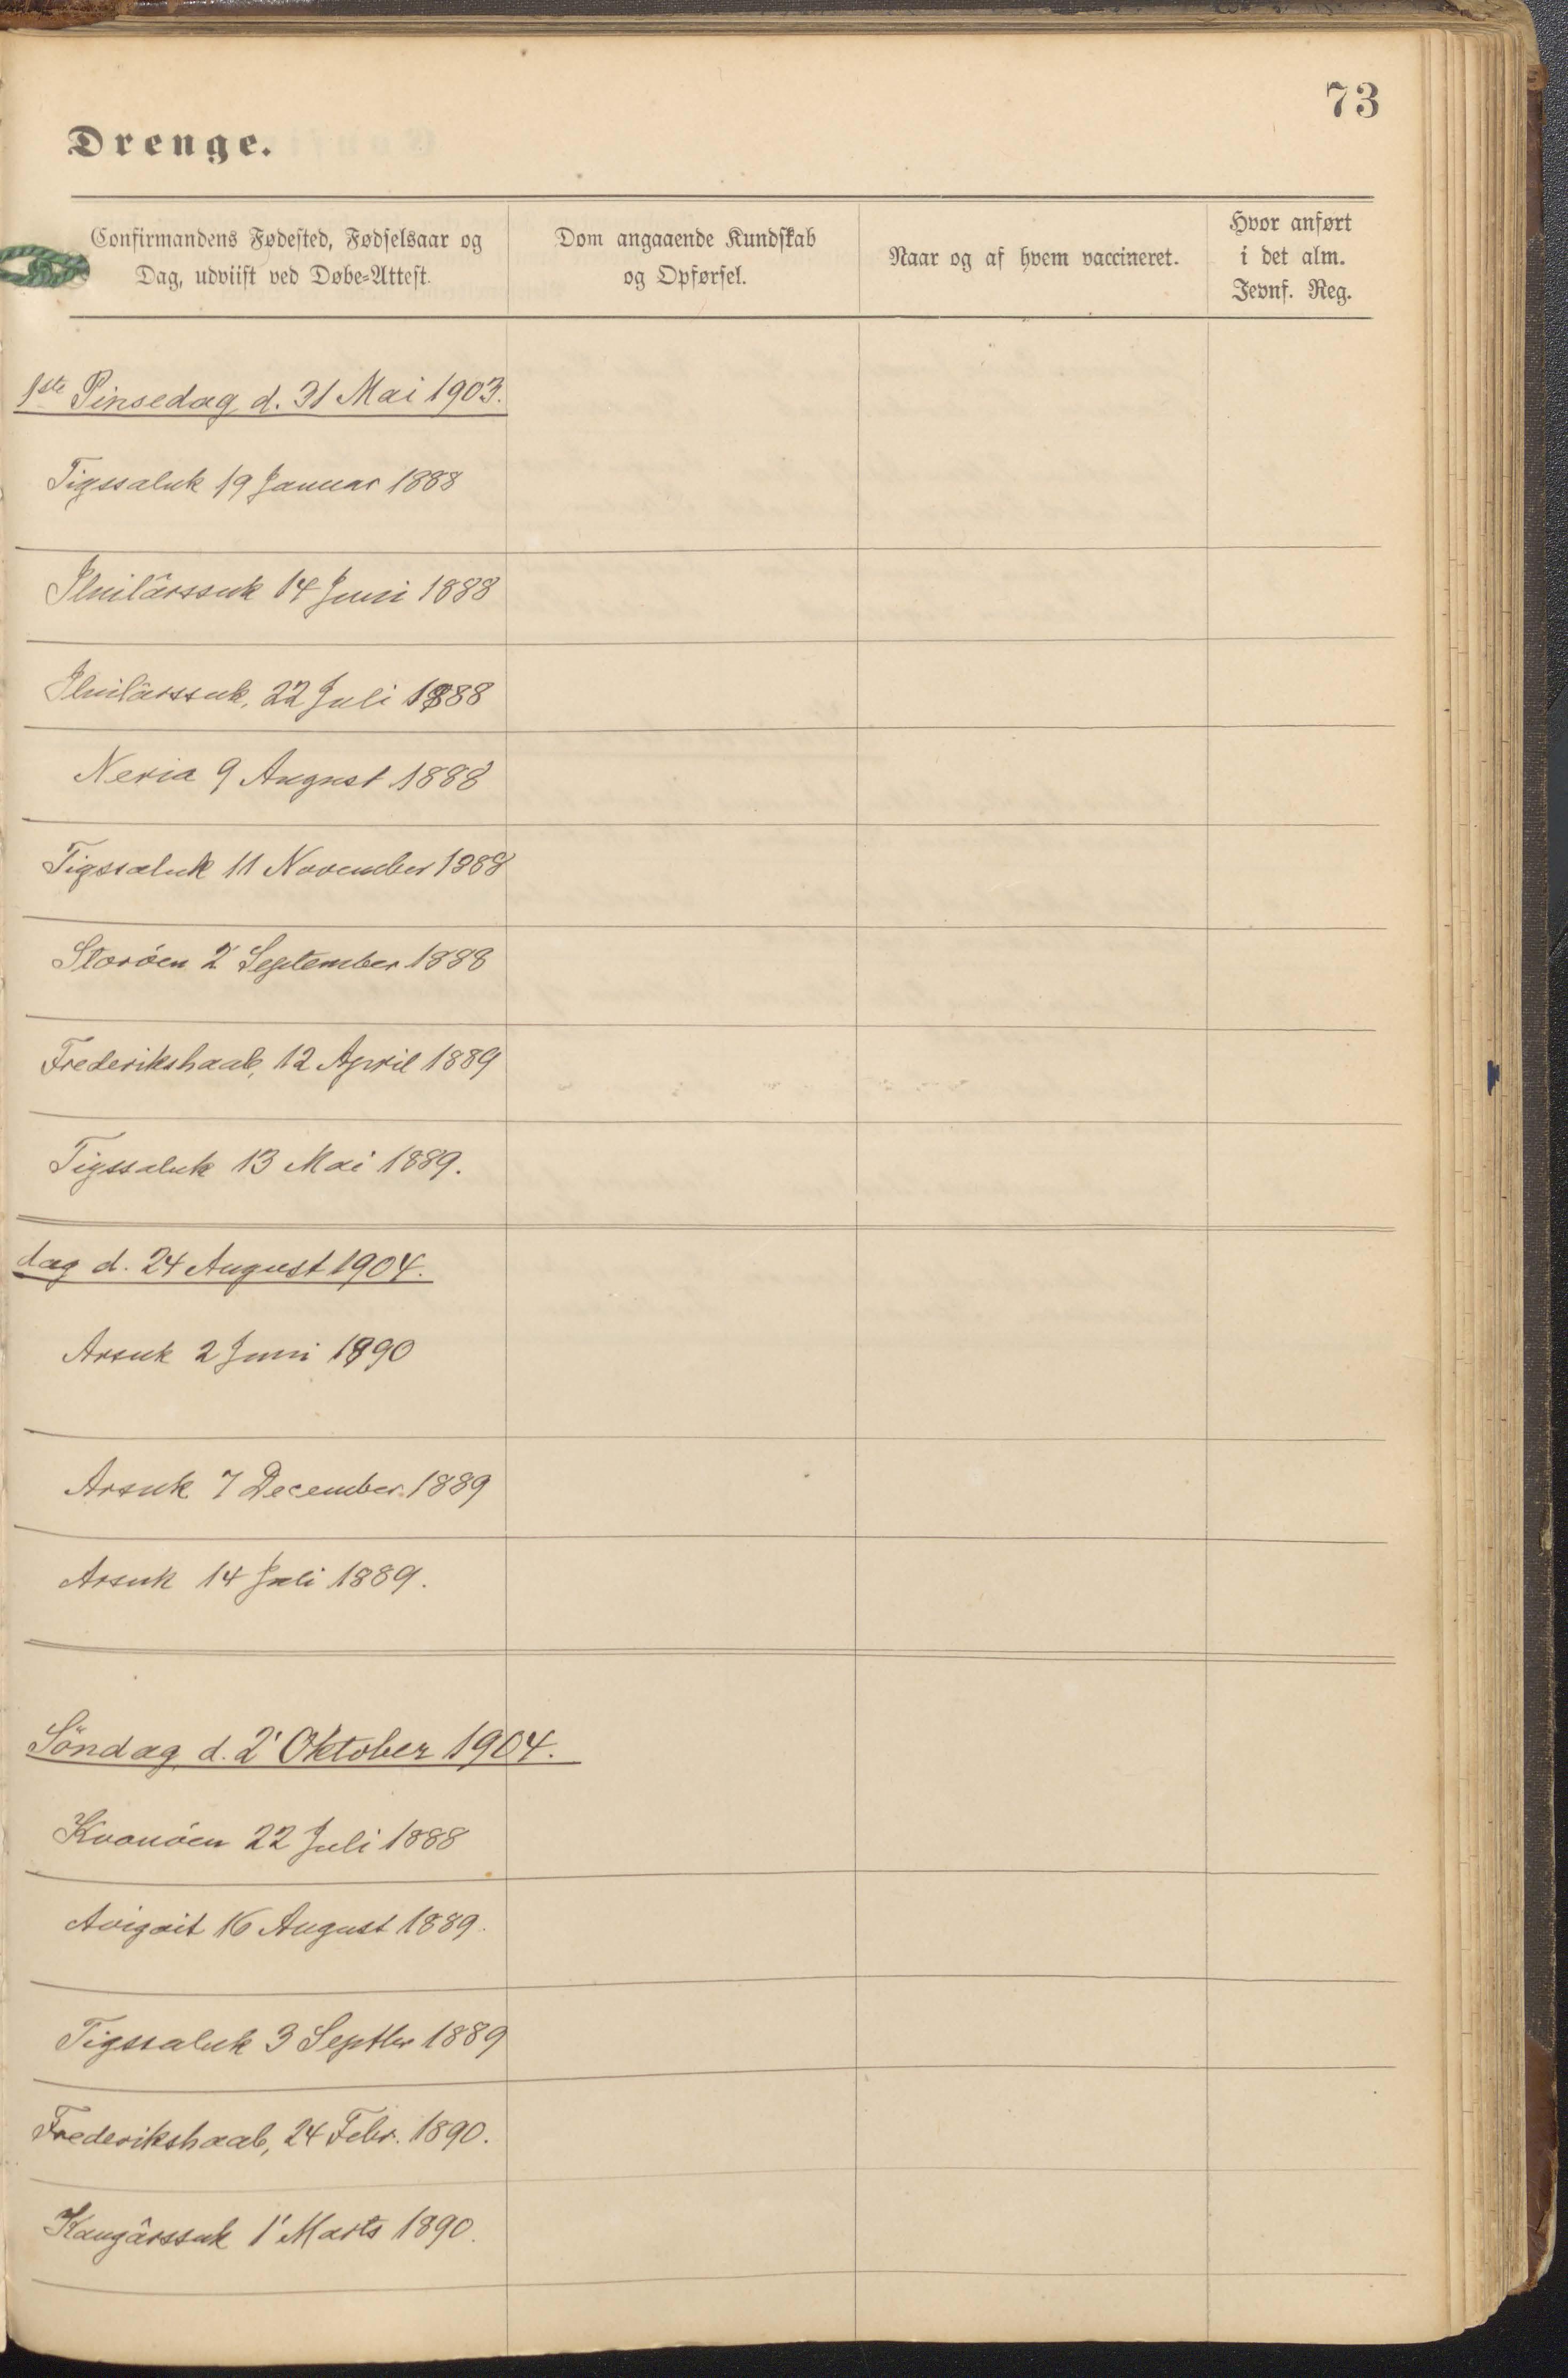 73
Drenge.
Confirmandens Fødested, Fødselsaar og
Dag, udviist ved Døbe=Attest.
Dom angaaende Kundskab
og Opførsel.
Naar og af hvem vaccineret.
Hvor anført
i det alm.
Jevnf. Reg.
1ste Pinsedag d. 31 Mai 1903.
Tigssaluk 19 Januar 1888
Iluilârssuk 14 Juni 1888
Iluilârssuk, 22 Juli 1888
Neria 9 August 1888
Tigssaluk 11 November 1888
Storöen 2' September 1888
Frederikshaab, 12 April 1889
Tigssaluk 13 Mai 1889.
dag d. 24 August 1904.
Arsuk 2 Juni 1890
Arsuk 7 December 1889
Arsuk 14 Juli 1889.
Söndag d. 2' Oktober 1904.
Kvanöen 22 Juli 1888
Avigait 16 August 1889.
Tigssaluk 3 Septbr 1889
Frederikshaab, 24 Febr. 1890.
Kangârssuk 1' Marts 1890.